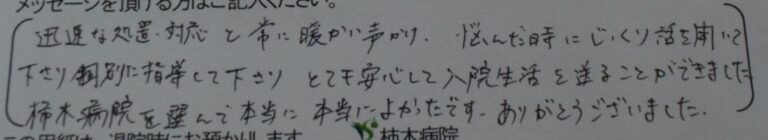 メッセージを頂ける方はご記入ください。
迅速な処置・対応と常に暖かい声かけ、悩んだ時にじっくり話を聞いて
下さり個別に指導して下さり とても安心して入院生活を送ることができました
柿木病院を選んで本当に本当によかったです。ありがとうございました。
この用紙は、退院時にお預かりします 柿木病院